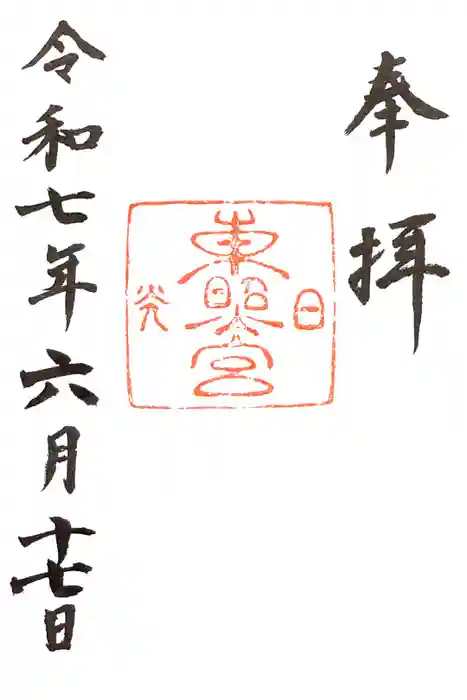 奉拝
日
東照宮
光
令和七年六月十七日